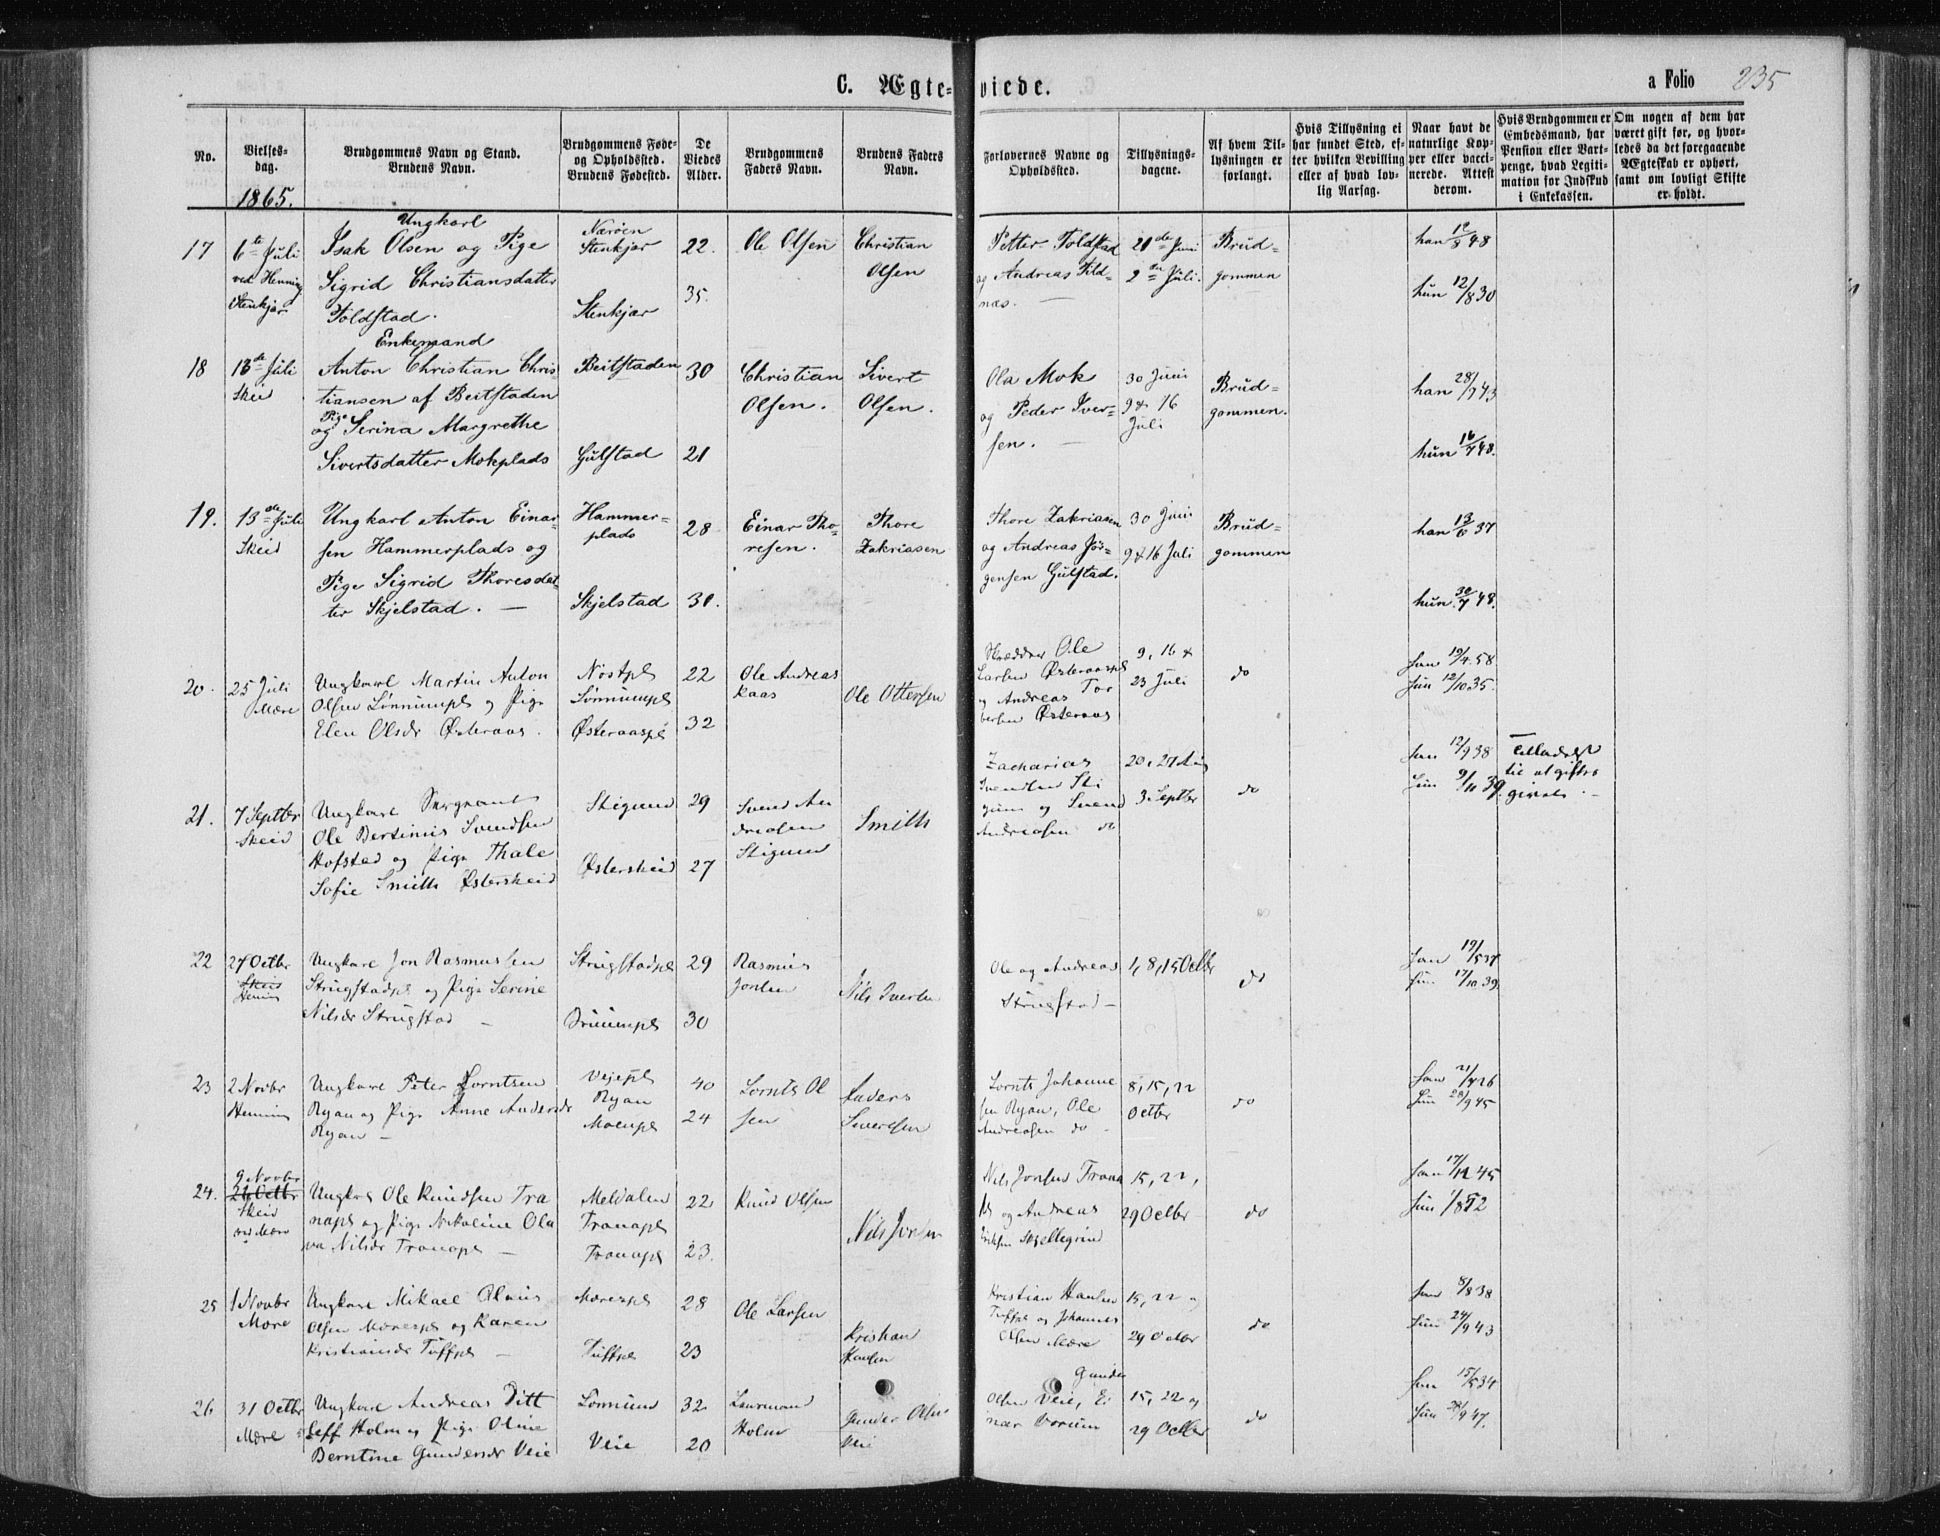 C. Ægte-viede.
a Folio 235
No.
Vielses-dag.
Brudgommens Navn og Stand.
Brudens Navn.
Brudgommens Føde-
og Opholdssted.
Brudens Fødested.
De
Viedes
Alder.
Brudgommens
Faders Navn.
Brudens Faders
Navn.
Forlovernes Navne og
Opholdssted.
Tillysnings-
dagene.
Af hvem Til-
lysningen er
forlangt.
Hvis Tillysning ei
har fundet Sted, ef-
ter hvilken Bevilling
eller af hvad lov-
lig Aarsag.
Naar havt de
naturlige Kop-
per eller vacci-
nerede. Attest
derom.
Hvis Brudgommen er
Embedsmand, har
Pension eller Vart-
penge, hvad Legiti-
mation for Indskud
i Enkekassen.
Om nogen af dem har
været gift før, og hvor-
ledes da det foregaaende
Ægteskab er ophørt,
samt om lovligt Skifte
er holdt.
1865.
17
6te Juli
ved Henning
Stenkjær
Ungkarl
Isak Olsen og Pige
Sigrid Christiansdatter
Toldstad.
Nærøen
Stenkjær
Stenkjær
22.
35.
Ole Olsen
Christian
Olsen
Petter Toldstad
og Andreas Fild-
næs. —
21de Juni
2den Juli.
Brud-
gommen
han 19/8 48
hun 12/8 30
18
13de Juli
Skei
Enkemand
Anton Christian Chris-
tiansen af Beitstaden
Pige
og Serina Margrethe
Sivertsdatter Mokplads
Beitstaden
Gulstad
30
21
Christian
Olsen.
Sivert
Olsen.
Ola Mok
og Peder Iver-
sen. —
30 Juni
9 & 16
Juli
Brud-
gommen.
han 28/7 43
hun 16/7 48.
19.
13de Juli
Skeid
Ungkarl Anton Einar-
sen Hammerplads og
Pige Sigrid Thoresdat-
ter Skjelstad. —
Hammer-
plads
Skjelstad
28
30.
Einar Tho-
resen.
Thore
Zakriasen
Thore Zakriasen
og Andreas Jør-
gensen Gulstad.
30 Juni
9 & 16 Juli
Brud-
gommen
han 13/6 37
hun 30/7 48.
20.
25 Juli
Mære
Ungkarl Martin Anton
Olsen Lønnumpl og Pige
Elen Olsdr Østeraas.
Nøstpl
Lønnumpl
Østeraaspl
22
32
Ole Andreas
Kaas
Ole Ottersen
Skrædder Ole
Larsen Østeraaspl
og Andreas Tor
bersen Østeraas
9, 16 &
23 Juli
do
han 19/4 58
hun 12/10 35.
21.
7 Septbr
Skeid
Ungkarl Sergeant
Ole Bertinus Svendsen
Hofstad og Pige Thale
Sofie Smith Østerskeid
Stigum
Østerskeid
29
27
Svend An
dreasen
Stigum
Smith
Zacharias
Svendsen Sti
gum og Svend
Andreasen do
20, 27 Aug
3 Septbr
do
han 12/9 38
hun 9/11 39.
Tilladelse
til at giftes
givet. —
22
27 Octbr
Skeid
Henning
Ungkarl Jon Rasmussen
Strugstadpl og Pige Serine
Nilsdr Strugstad —
Strugstadpl
29
30
Rasmus
Jonsen
Nils Iversen
Ole og Andreas
Strugstad —
1, 8, 15 Octbr
do
han 19/5 37
hun 17/10 39
23
2 Novbr
Henning
Ungkarl Peter Lorntsen
Ryan og Pige Anne Andersdr
Ryan —
Vejepl
Ryan
Moenpl
40
24
Lornts Ol
sen
Anders
Sivertsen
Lornts Johanne
sen Ryan, Ole
Andreasen do —
8, 15, 22
Octbr
do
han 21/7 26
hun 28/9 45
24.
9 Novbr
26 Octbr
Skeid
ved Mære
Ungkarl Ole Knudsen Tra
napl og Pige Nikoline Ola
va Nilsdr Tranapl —
Meldalen
Tranapl
Tranapl
22
23.
Knud Olsen
Nils Jonsen
Nils Jonsen Trana
pl og Andreas
Eriksen Skjellegrind
15, 22,
29 Octbr
do
han 17/12 45
hun 1/8 52
25
1 Novbr
Mære
Ungkarl Mikael Olaus
Olsen Mærespl og Karen
Kristiansdr Tuftpl —
Mærespl
Tuftpl
28
23
Ole Larsen
Kristian
Hansen
Kristian Hansen
Tuftpl og Johannes
Olsen Mære
15, 22 og
29 Octbr
do
han 8/8 38
hun 24/9 43
26
31 Octbr
Mære
Ungkarl Andreas Ditt
leff Holm og Pige Oline
Berntine Gundersdr Veie
Lønnum
Veie
32
20
Laurmand
Holm
Gunder Olsen
Veie
Gunder
Olsen Veie, Ei
nar Vorum
15, 22 og
29 Octbr
do
han 15/5 34
hun 28/9 47.